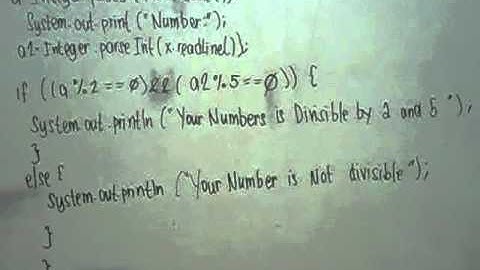 System.out.print ("Number:");
a2=Integer.parseInt(x.readline());
if ((a%2==0)&&(a2%5==0)) {
System.out.println ("Your Numbers is Divisible by 2 and 5 ");
}
else {
System.out.println ("Your Number is Not divisible");
}
}